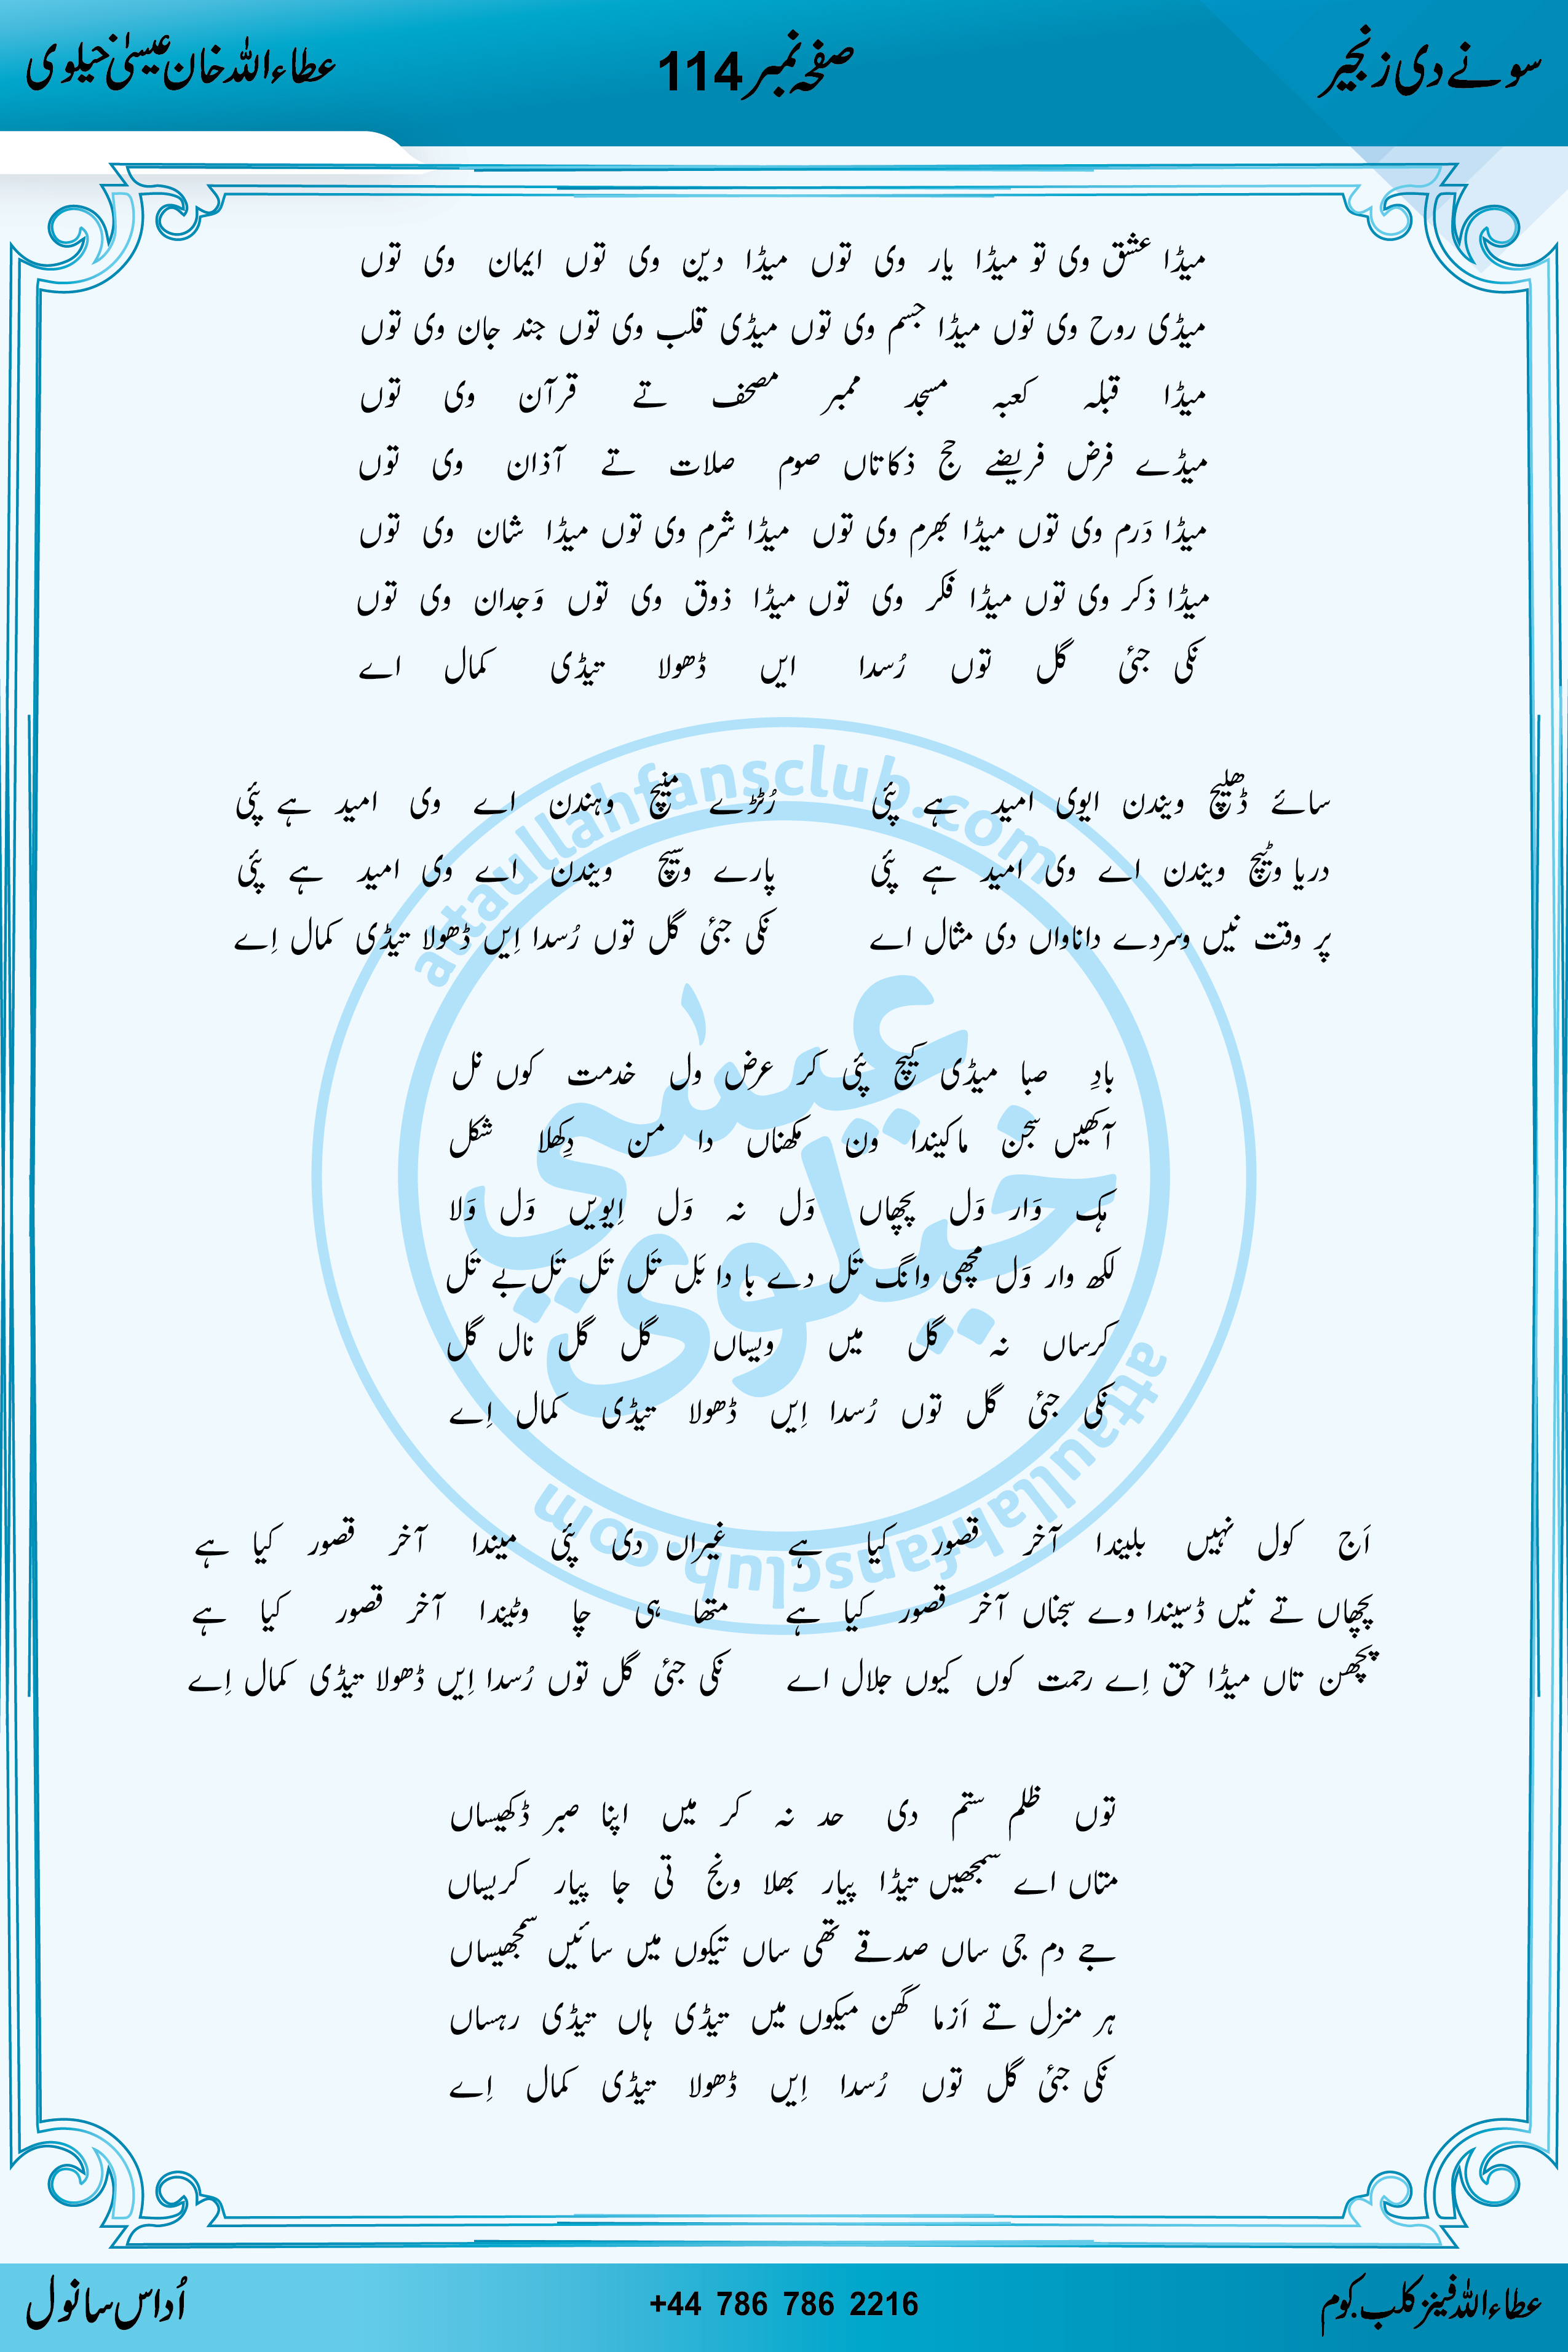 سونے دی زنجیر
صفحہ نمبر 114
عطاء اللہ خان عیسیٰ خیلوی
میڈا عشق وی تو میڈا یار وی توں میڈا دین وی توں ایمان وی توں
میڈی روح وی توں میڈا جسم وی توں میڈی قلب وی توں جند جان وی توں
میڈا قبلہ کعبہ مسجد ممبر مصحف تے قرآن وی توں
میڈے فرض فریضے حج ذکاتاں صوم صلات تے آذان وی توں
میڈا دَرم وی توں میڈا بھرم وی توں میڈا شرم وی توں میڈا شان وی توں
میڈا ذکر وی توں میڈا فکر وی توں میڈا ذوق وی توں وَجدان وی توں
نکی جئی گل توں رُسدا ایں ڈھولا تیڈی کمال اے
سائے ڈھلیچ ویندن ایوی امید ہے پئی رُٹڑے منیچ وہندن اے وی امید ہے پئی
دریا وٹیچ ویندن اے وی امید ہے پئی پارے وسیچ ویندن اے وی امید ہے پئی
پر وقت نیں وسردے داناواں دی مثال اے نکی جئی گل توں رُسدا اِیں ڈھولا تیڈی کمال اِے
بادِ صبا میڈی کیچ پئی کر عرض ول خدمت کوں نل
آکھیں سجن ماکیندا ون مکھناں دا من دِکھلا شکل
ہک وَار وَل پچھاں وَل نہ وَل اِیویں وَل وَلا
لکھ وار وَل مچھی وانگ تَل دے با دا بَل تَل تَل تَل بے تَل
کرساں نہ گل میں ویساں گل گل نال گل
نکی جئی گل توں رُسدا اِیں ڈھولا تیڈی کمال اِے
اَج کول نہیں بلیندا آخر قصور کیا ہے غیراں دی پئی میندا آخر قصور کیا ہے
پچھاں تے نیں ڈسیندا وے سجناں آخر قصور کیا ہے متھا ہی چا وٹیندا آخر قصور کیا ہے
پچھن تاں میڈا حق اِے رحمت کوں کیوں جلال اے نکی جئی گل توں رُسدا اِیں ڈھولا تیڈی کمال اِے
توں ظلم ستم دی حد نہ کر میں اپنا صبر ڈکھیساں
متاں اے سمجھیں تیڈا پیار بھلا ونج تی جا پیار کریساں
جے دم جی ساں صدقے تھی ساں تیکوں میں سائیں سمجھیساں
ہر منزل تے اَزما گھن میکوں میں تیڈی ہاں تیڈی رہساں
نکی جئی گل توں رُسدا اِیں ڈھولا تیڈی کمال اِے
attaullahfansclub.com
عیسٰی
خیلوی
attaullahfansclub.com
عطاء اللہ فینز کلب.کوم
+44 786 786 2216
اُداس سانول